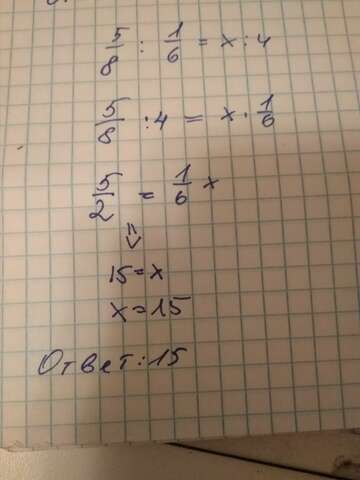 5/8 : 1/6 = x : 4
5/8 : 4 = x · 1/6
5/2 = 1/6 x
⇓
15 = x
x = 15
Ответ: 15